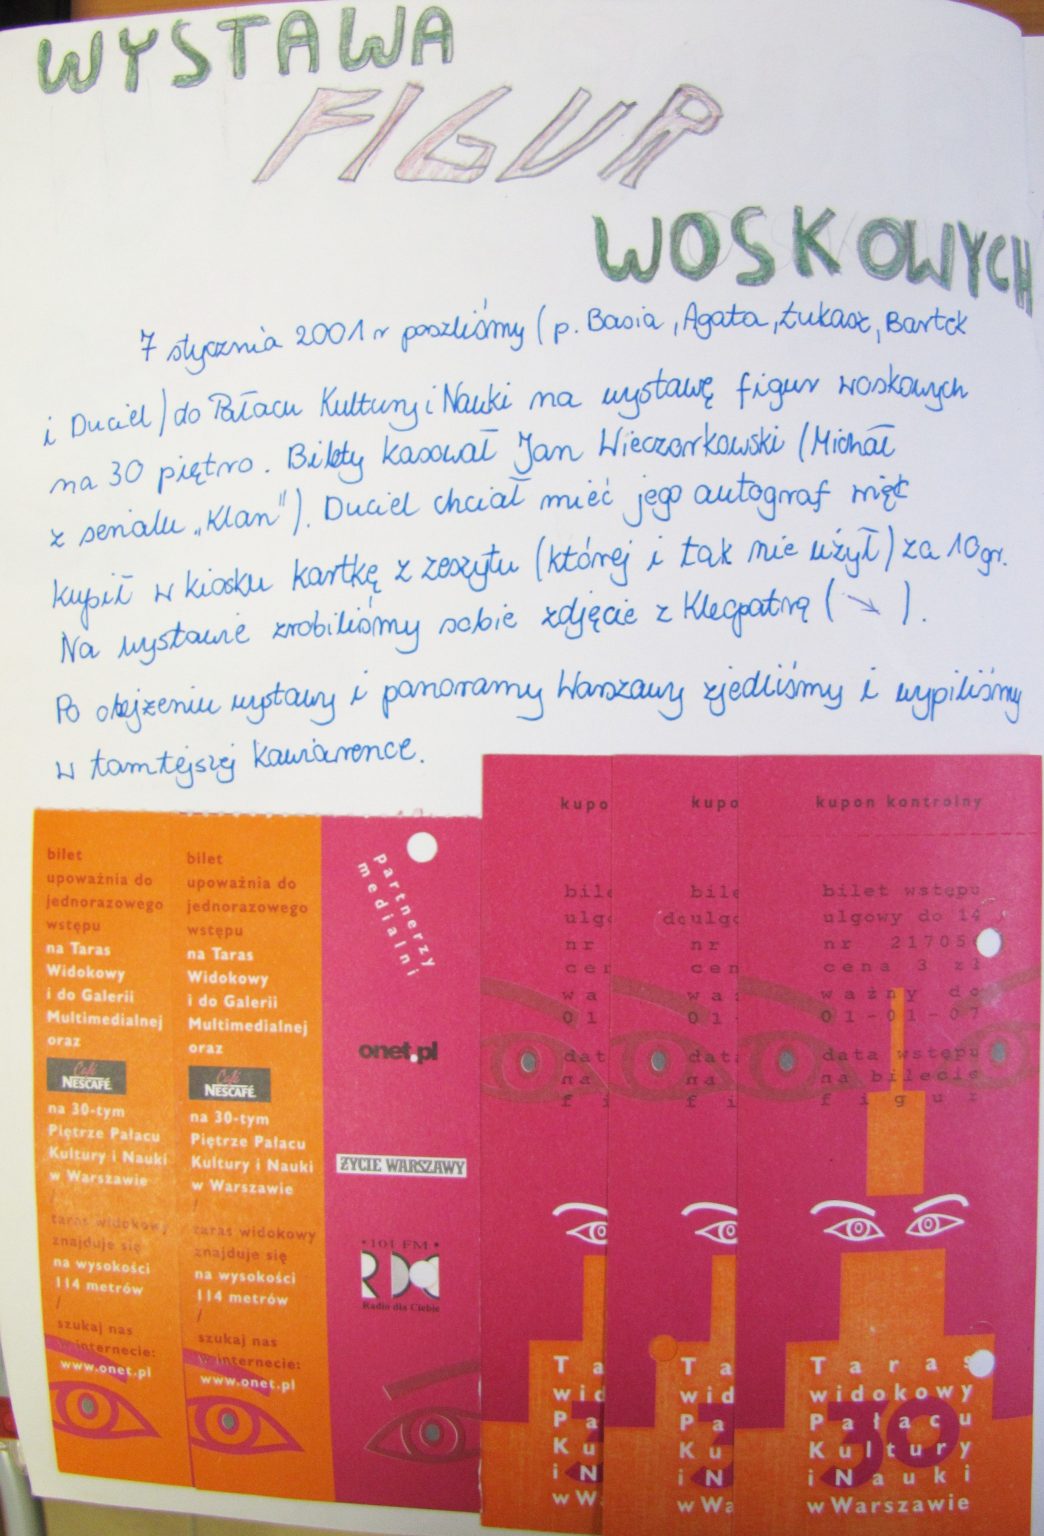 WYSTAWA
FIGUR
WOSKOWYCH
7 stycznia 2001 r poszliśmy (p. Basia, Agata, Łukasz, Bartek
i Duciel) do Pałacu Kultury i Nauki na wystawę figur woskowych
na 30 piętro. Bilety kasował Jan Wieczorkowski (Michał
z serialu „Klan"). Duciel chciał mieć jego autograf więc
kupił w kiosku kartkę z zeszytu (której i tak nie użył) za 10gr.
Na wystawie zrobiliśmy sobie zdjęcie z Kleopatrą ( ↘ ).
Po obejżeniu wystawy i panoramy Warszawy zjedliśmy i wypiliśmy
w tamtejszej kawiarence.
bilet
upoważnia do
jednorazowego
wstępu
na Taras
Widokowy
i do Galerii
Multimedialnej
oraz
Café
NESCAFÉ
na 30-tym
Piętrze Pałacu
Kultury i Nauki
w Warszawie
/
taras widokowy
znajduje się
na wysokości
114 metrów
/
szukaj nas
w internecie:
www.onet.pl
bilet
upoważnia do
jednorazowego
wstępu
na Taras
Widokowy
i do Galerii
Multimedialnej
oraz
Café
NESCAFÉ
na 30-tym
Piętrze Pałacu
Kultury i Nauki
w Warszawie
/
taras widokowy
znajduje się
na wysokości
114 metrów
/
szukaj nas
w internecie:
www.onet.pl
partnerzy
medialni
onet.pl
ŻYCIE WARSZAWY
• 101 FM •
RDC
Radio dla Ciebie
kupo
bile
ulgo
nr
cen
wa
01
dat
na
fi
Ta
wid
Pa
Ku
i N
w Wa
kupo
bile
ulgo
nr
cen
wa
01-
dat
na
fi
Ta
wid
Pa
Ku
i N
w Wa
kupon kontrolny
bilet wstępu
ulgowy do 14
nr 21705
cena 3 zł
ważny do
01-01-07
data wstępu
na bilecie
figur
Taras
widokowy
Pałacu
Kultury
i Nauki
w Warszawie
30